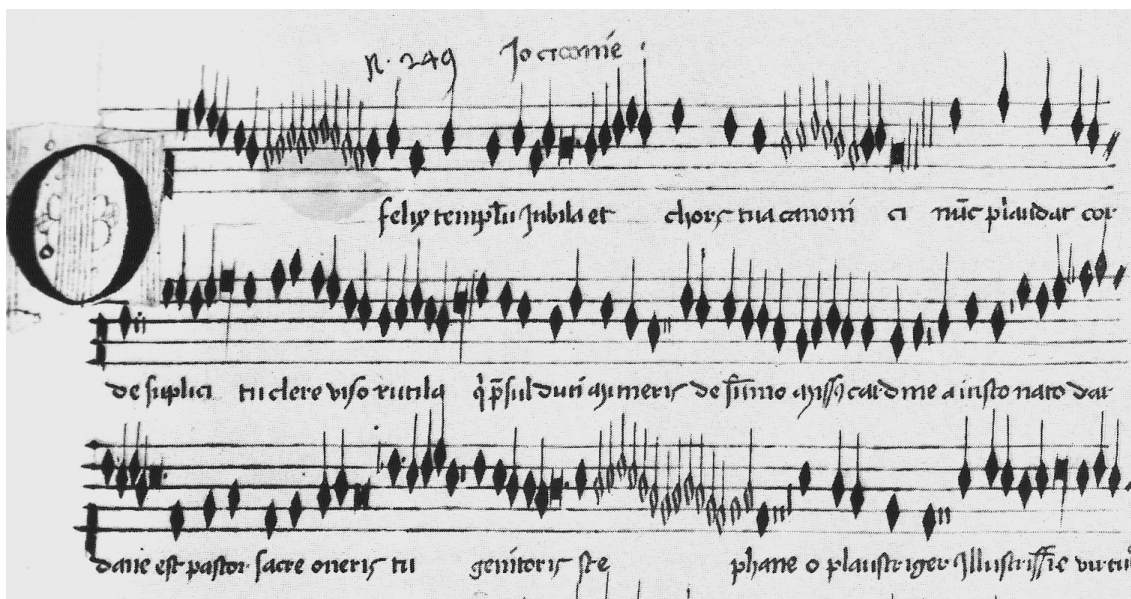 N. 249 Jo ciconie
O felix templu Jubila et chors tua canoni ci nuc plaudat cor
de suplici tu clere viso rutila duti aymeris de sumo cardine a iusto nato dar
danie est pastor sacre oneris tu genitoris ste phane o plaustriger Illustrissie virtu